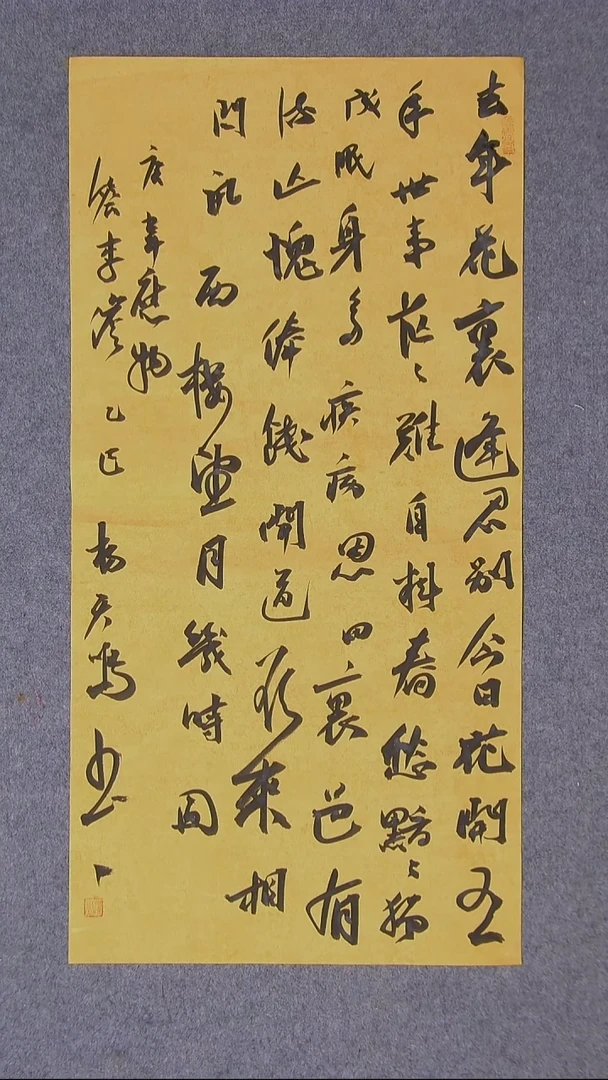 去年花裏逢君别今日花開又一
年世事茫々難自料春愁黯々獨
成眠身多疾病思田裏邑有
流亡愧俸錢聞道欲來相
問訊西樓望月幾時圓
唐韋應物
李儋 乙巳 楊天 书